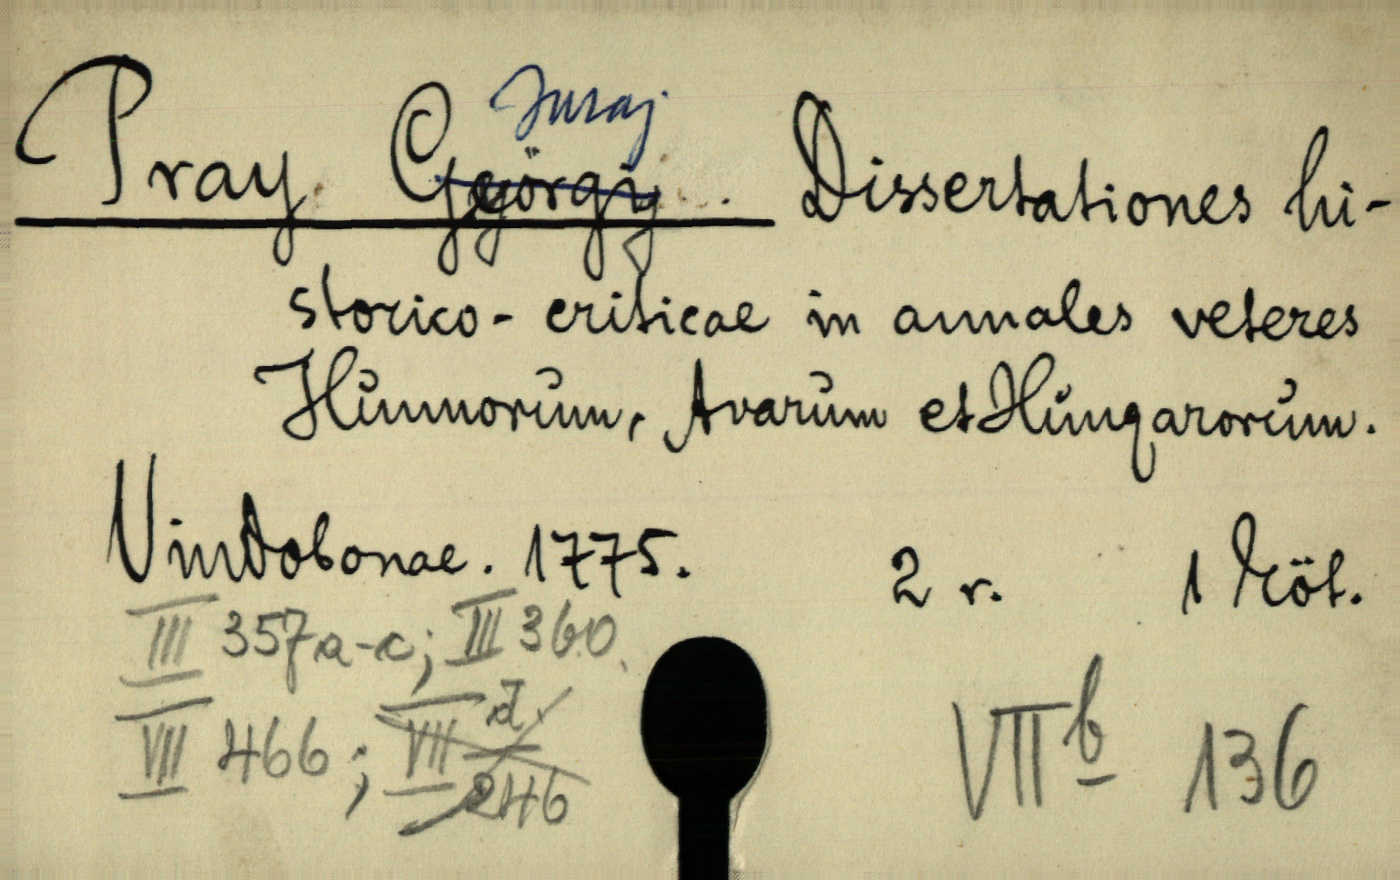 Juraj
Pray Györgij. Dissertationes hi-
storico-criticae in annales veteres
Hunnorum, Avarum et Hungarorum.
Vindobonae. 1775. 2 r. 1 Köt.
III 357a-c; III 360.
VII 466; VII d 246
VII b 136